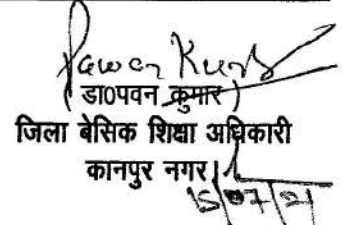 Pawan Kumar
( डा0पवन कुमार )
जिला बेसिक शिक्षा अधिकारी
कानपुर नगर।
15/07/21